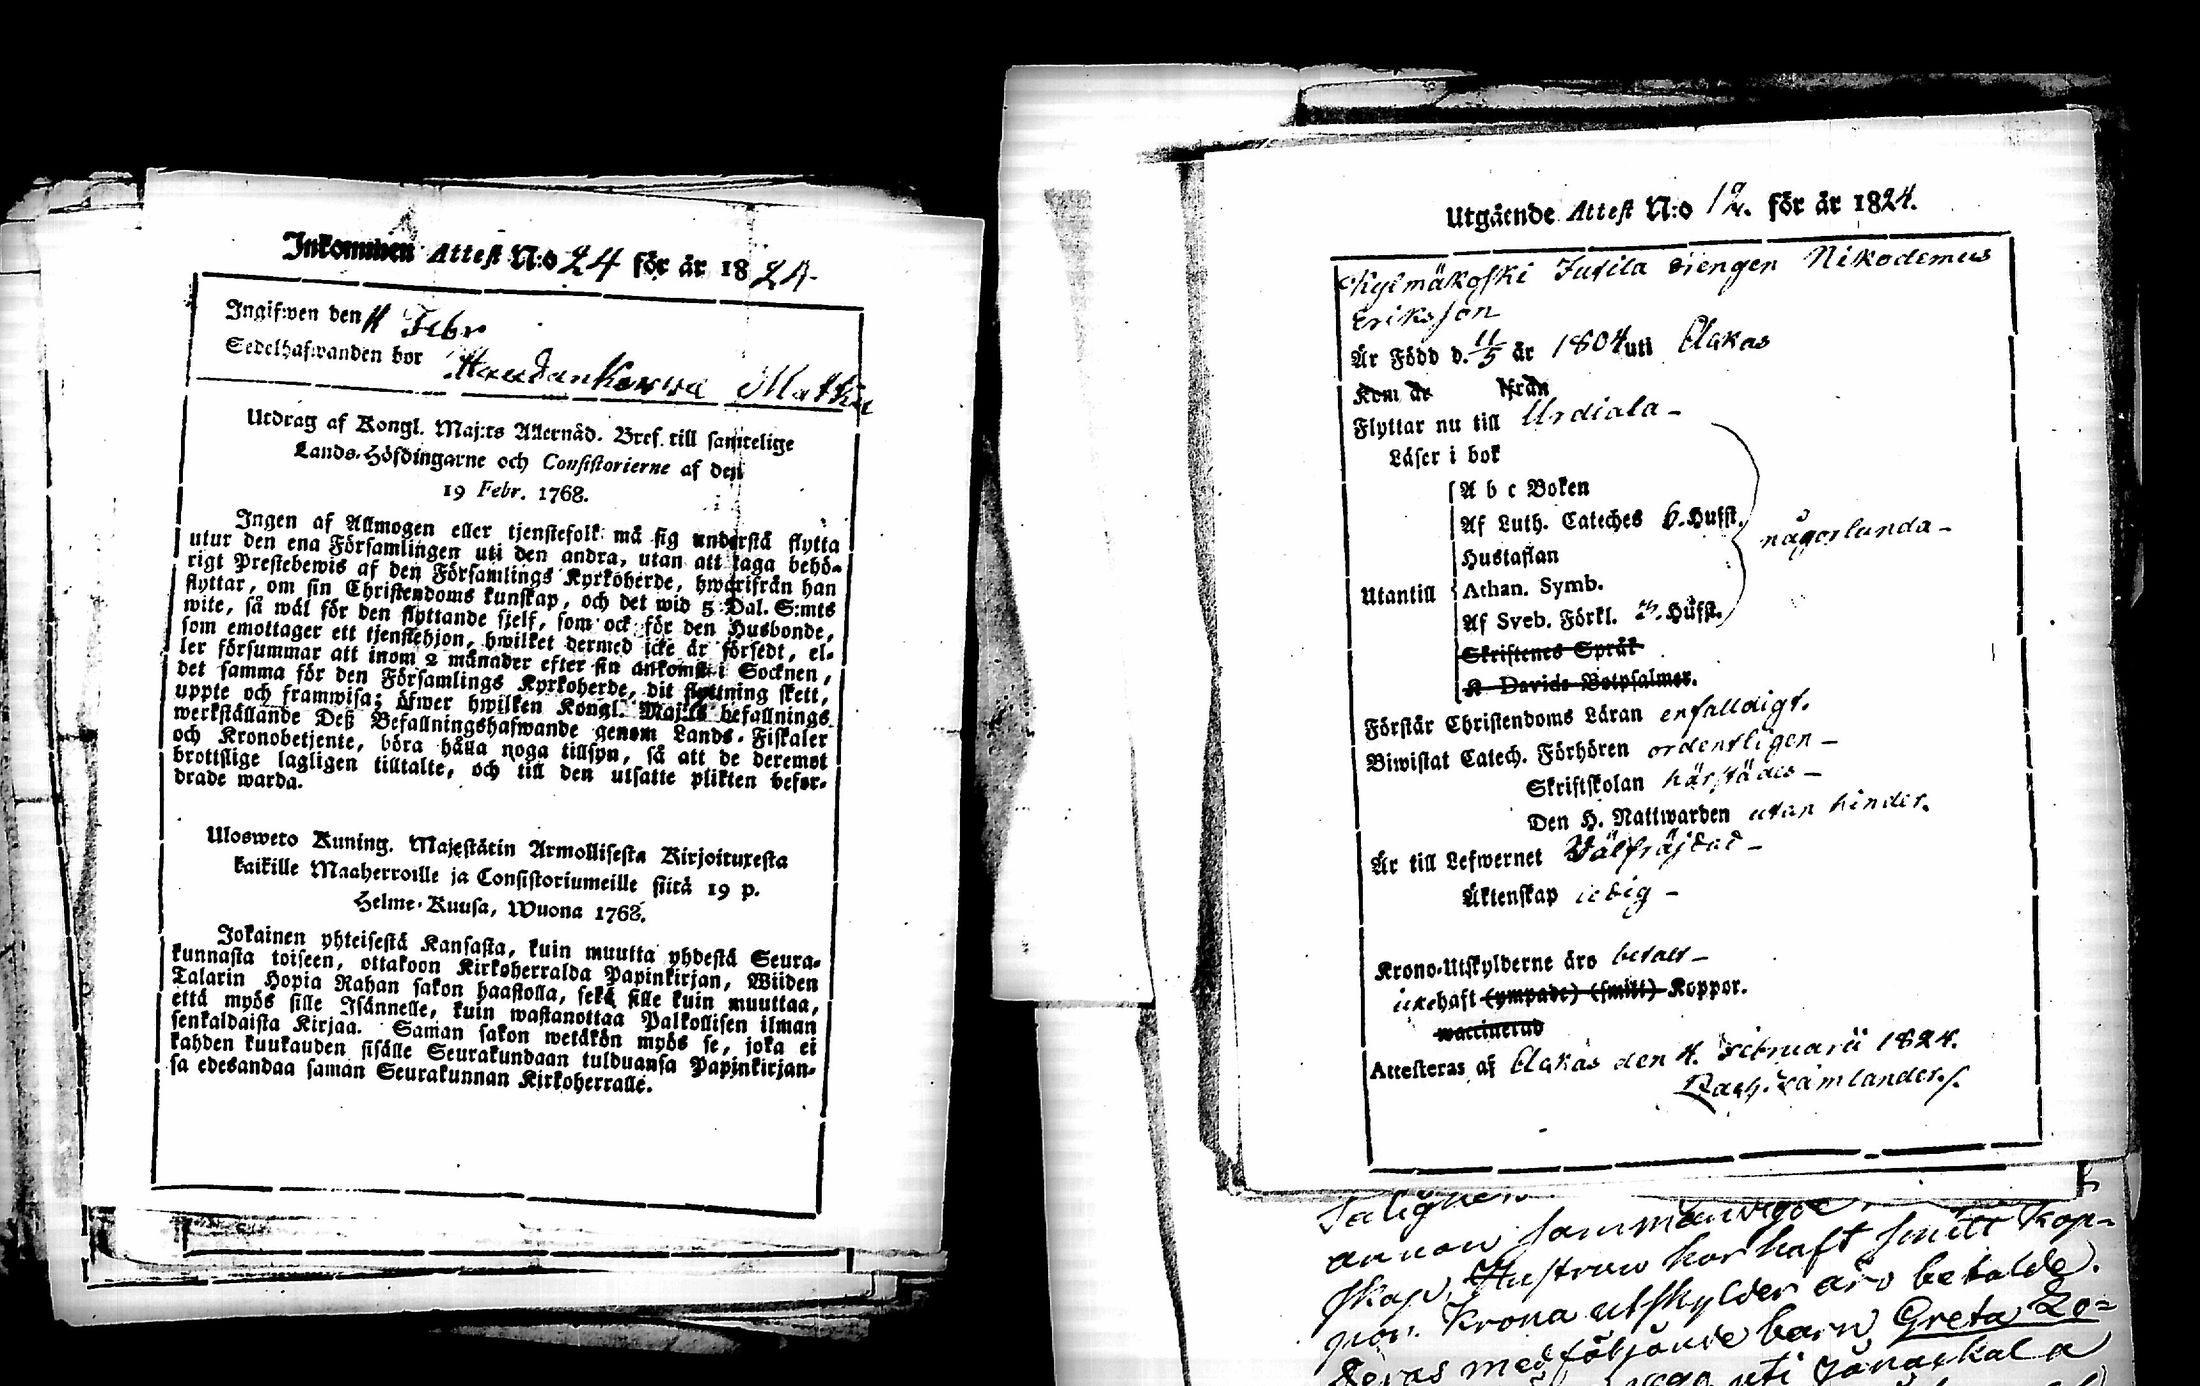 Inkommen Attest N:o 24 för år 1824.
Ingifwen den 11 Febr
Sedelhafwanden bor Haudankorwa Matku
Utdrag af Kongl. Maj:ts Allernåd. Bref till samtelige
Lands-Höfdingarne och Consistorierne af den
19 Febr. 1768.
Ingen af Allmogen eller tjenstefolk må sig understå flytta
utur den ena Församlingen uti den andra, utan att taga behö-
rigt Prestebewis af den Församlings Kyrkoherde, hwarifrån han
flyttar, om sin Christendoms kunskap, och det wid 5 Dal. S:mts
wite, så wäl för den flyttande sjelf, som ock för den Husbonde,
som emottager ett tjenstehjon, hwilket dermed icke är försedt, el-
ler försummar att inom 2 månader efter sin ankomst i Socknen,
det samma för den Församlings Kyrkoherde, dit flyttning skett,
uppte och framwisa; öfwer hwilken Kongl. Maj:ts befallnings
werkställande Deß Befallningshafwande genom Lands-Fiskaler
och Kronobetjente, böra hålla noga tillsyn, så att de deremot
brottslige lagligen tilltalte, och till den utsatte plikten befor-
drade warda.
Ulosweto Kuning. Majestätin Armollisesta Kirjoituxesta
kaikille Maaherroille ja Consistoriumeille siitä 19 p.
Helme-Kuusa, Wuona 1768.
Jokainen yhteisestä Kansasta, kuin muutta yhdestä Seura-
kunnasta toiseen, ottakoon Kirkoherralda Papinkirjan, Wiiden
Talarin Hopia Rahan sakon haastolla, sekä sille kuin muuttaa,
että myös sille Isännelle, kuin wastanottaa Palkollisen ilman
senkaldaista Kirjaa. Saman sakon wetäkön myös se, joka ei
kahden kuukauden sisälle Seurakundaan tulduansa Papinkirjan-
sa edesandaa saman Seurakunnan Kirkoherralle.
Utgående Attest N:o 12. för år 1824.
Kylmäkoski Jutila drengen Nikodemus
Eriksson
Är Född d. 11/5 år 1804 uti Akas
Kom år från
Flyttar nu till Urdiala -
Läser i bok
A b c Boken
Af Luth. Cateches 6. Hufst.
Hustaflan
någorlunda -
Utantill Athan. Symb.
Af Sveb. Förkl. 3. Hufst.
Skriftenes Språk
K Davids Botpsalmer.
Förstår Christendoms Läran enfalldigt.
Biwistat Catech. Förhören ordentligen -
Skriftskolan härstädes -
Den H. Nattwarden utan hinder.
Är till Lefwernet Välfräjdad -
Äktenskap ledig -
Krono-Utskylderne äro betalt -
icke haft (ympade) (smitt) Koppor.
vaccinerad
Attesteras af Akas den 4. Februarii 1824.
Zach. Cumlander./.
annon sammanvigde.
skap, Hustrun har haft smitt kop-
por. Krono utskylder äro betalde.
Deras medföljande barn Greta Lo-
uti Janackala